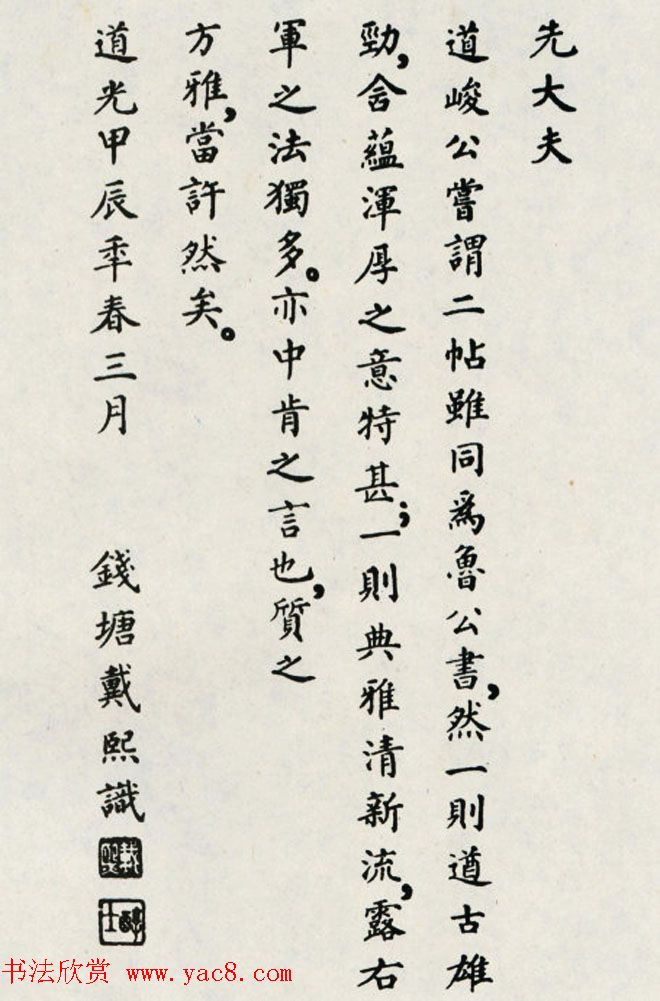 先大夫
道峻公嘗謂二帖雖同爲魯公書,然一則遒古雄
勁,含蘊渾厚之意特甚;一則典雅清新流,露右
軍之法獨多。亦中肯之言也,質之
方雅,當許然矣。
道光甲辰秊春三月 錢塘戴熙識
戴熙
醇士
书法欣赏 www.yac8.com